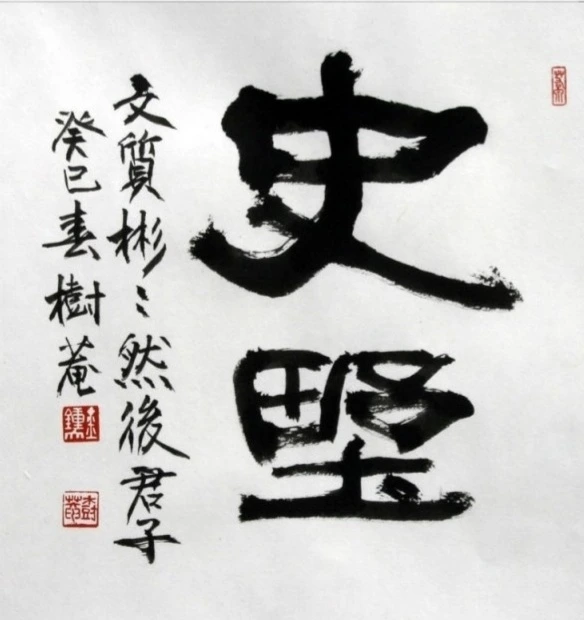 史野
文質彬〻然後君子
癸巳春樹菴